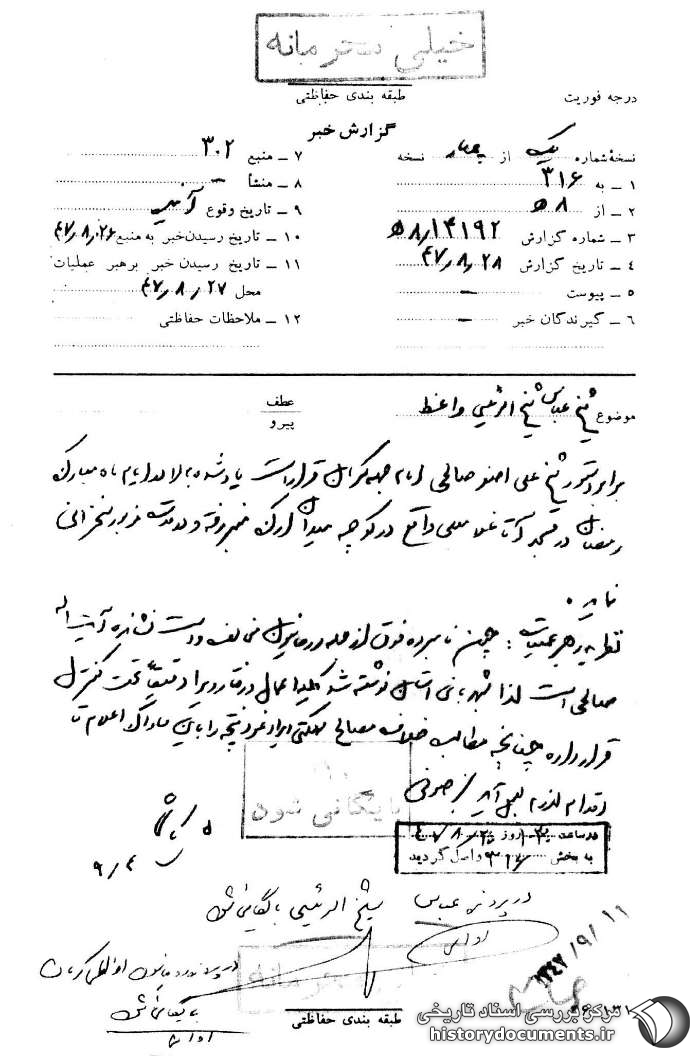 خیلی محرمانه
درجه فوریت
طبقه بندی حفاظتی
گزارش خبر
نسخهٔ شماره یک از چهار نسخه
۱ ـ به ۳۱۶
۲ ـ از ۸ ه‍
۳ ـ شماره گزارش ۱۴۱۹۲/ ۸ ه‍
۴ ـ تاریخ گزارش ۴۷/۸/۲۸
۵ ـ پیوست ـ
۶ ـ گیرندگان خبر ـ
۷ ـ منبع ۳۰۲
۸ ـ منشأ ـ
۹ ـ تاریخ وقوع
۱۰ ـ تاریخ رسیدن خبر به منبع ۴۷/۸/۲۶
۱۱ ـ تاریخ رسیدن خبر برهبر عملیات
محل ۴۷/۸/۲۷
۱۲ ـ ملاحظات حفاظتی
موضوع شیخ عباس شیخ الرئیسی واعظ
عطف
پیرو
برابر دستور شیخ علی اصغر صالحی امام جمعه کرمان قرار است یاد شده بالا در ایام ماه مبارک
رمضان در مسجد آقا غلامعلی واقع در کوچه میدان ارک منبر رفته و در مدت مزبور سخنرانی
نماید.
نظریه رهبر عملیات: چون نامبرده فوق از
صالحی است لذا به شهربانی استان نوشته شد کلیه اعمال و رفتار ویرا دقیقاً تحت کنترل
قرار داده چنانچه مطالب خلاف مصالح مملکتی ایراد نمود نتیجه را باین ساواک اعلام تا
اقدام لازم بعمل آید.
بایگانی شود
در ساعت روز ۴۷/۸/۳۰
به بخش ۳۱۶ واصل گردید
۹/۴
در پرونده عباس شیخ الرئیسی بایگانی شود
۱۳۴۷/۹/۱۱
بایگانی شود
خیلی محرمانه
طبقه بندی حفاظتی
مرکز بررسی اسناد تاریخی
historydocuments.ir